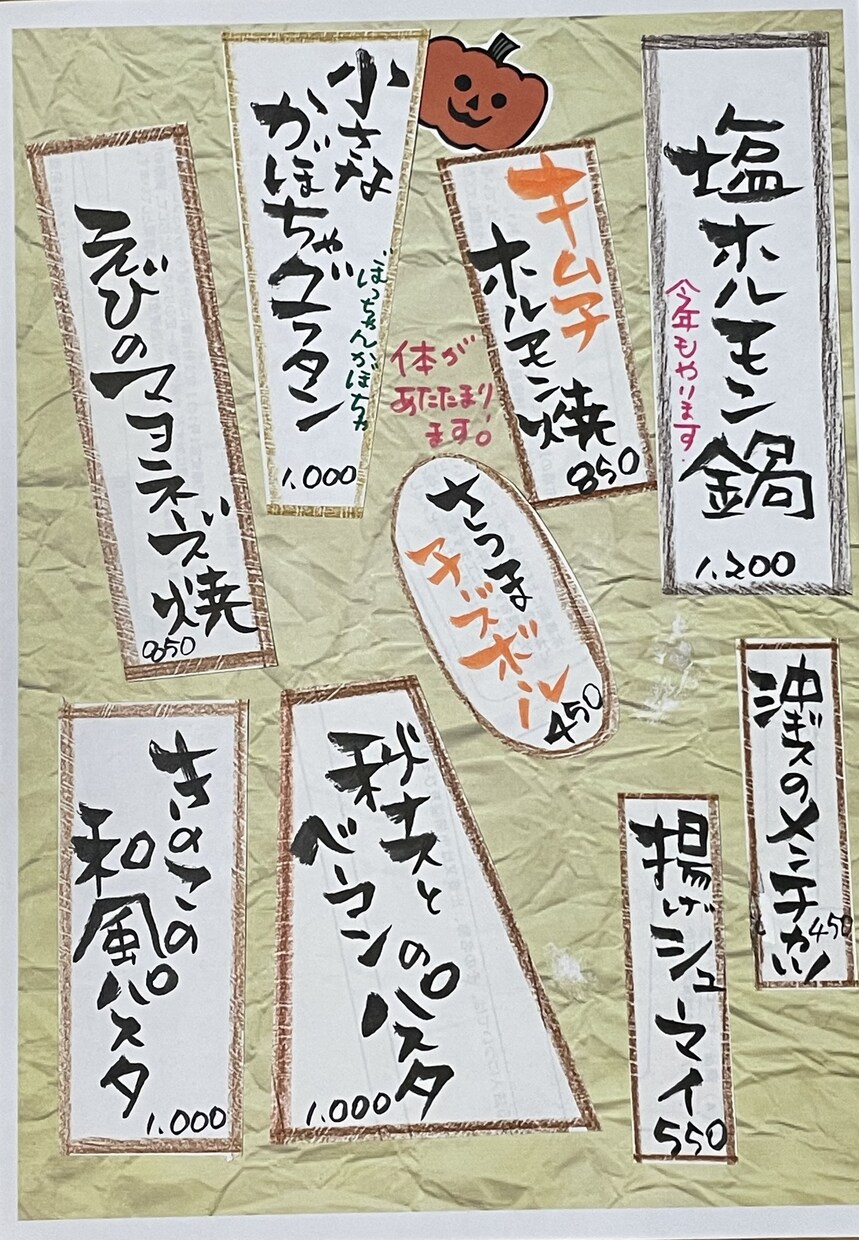 塩ホルモン鍋
今年もやります。
1,200
キムチ
ホルモン焼
850
体が
あたたまり
ます。
小さな
かぼちゃグラタン
ぼっちゃんかぼちゃ
1,000
えびのマヨネーズ焼
850
さつま
チーズボール
450
沖ギスのメンチカツ
450
揚げシューマイ
550
秋ナスと
ベーコンのパスタ
1,000
きのこの
和風パスタ
1,000